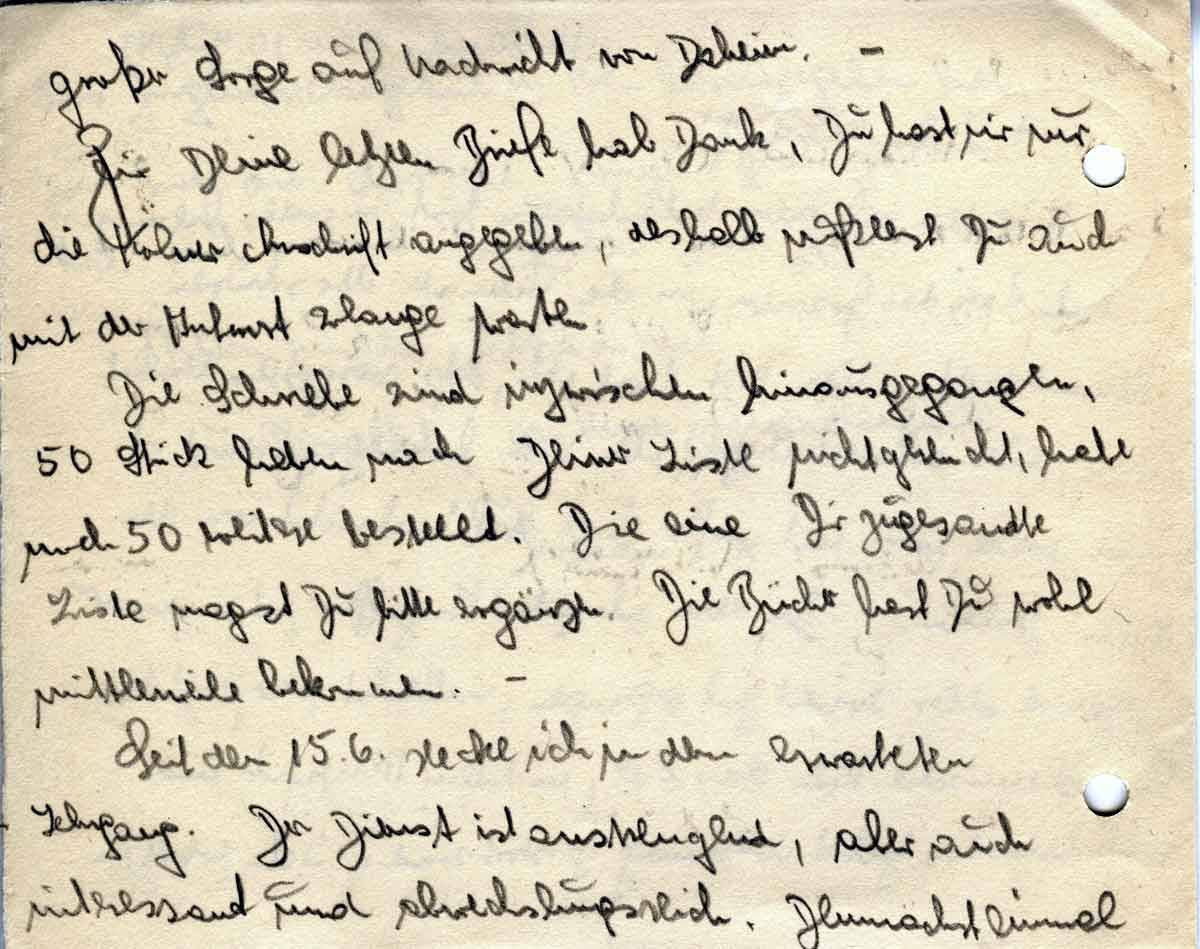 großer Sorge auf Nachricht von Daheim. –
Für Deine letzten Briefe hab Dank, Du hast mir nur
die Kölner Anschrift angegeben, deshalb mußtest Du auch
mit der Antwort solange warten.
Die Schriebe sind inzwischen hinausgegangen,
50 Stück haben nach Deiner Liste nicht gereicht, habe
noch 50 weitere bestellt. Die eine Dir zugesandte
Liste magst Du bitte ergänzen. Die Bücher hast Du wohl
mittlerweile bekommen. –
Seit dem 15.6. stecke ich in dem erwarteten
Lehrgang. Der Dienst ist anstrengend, aber auch
interessant und abwechslungsreich. Demnächst einmal